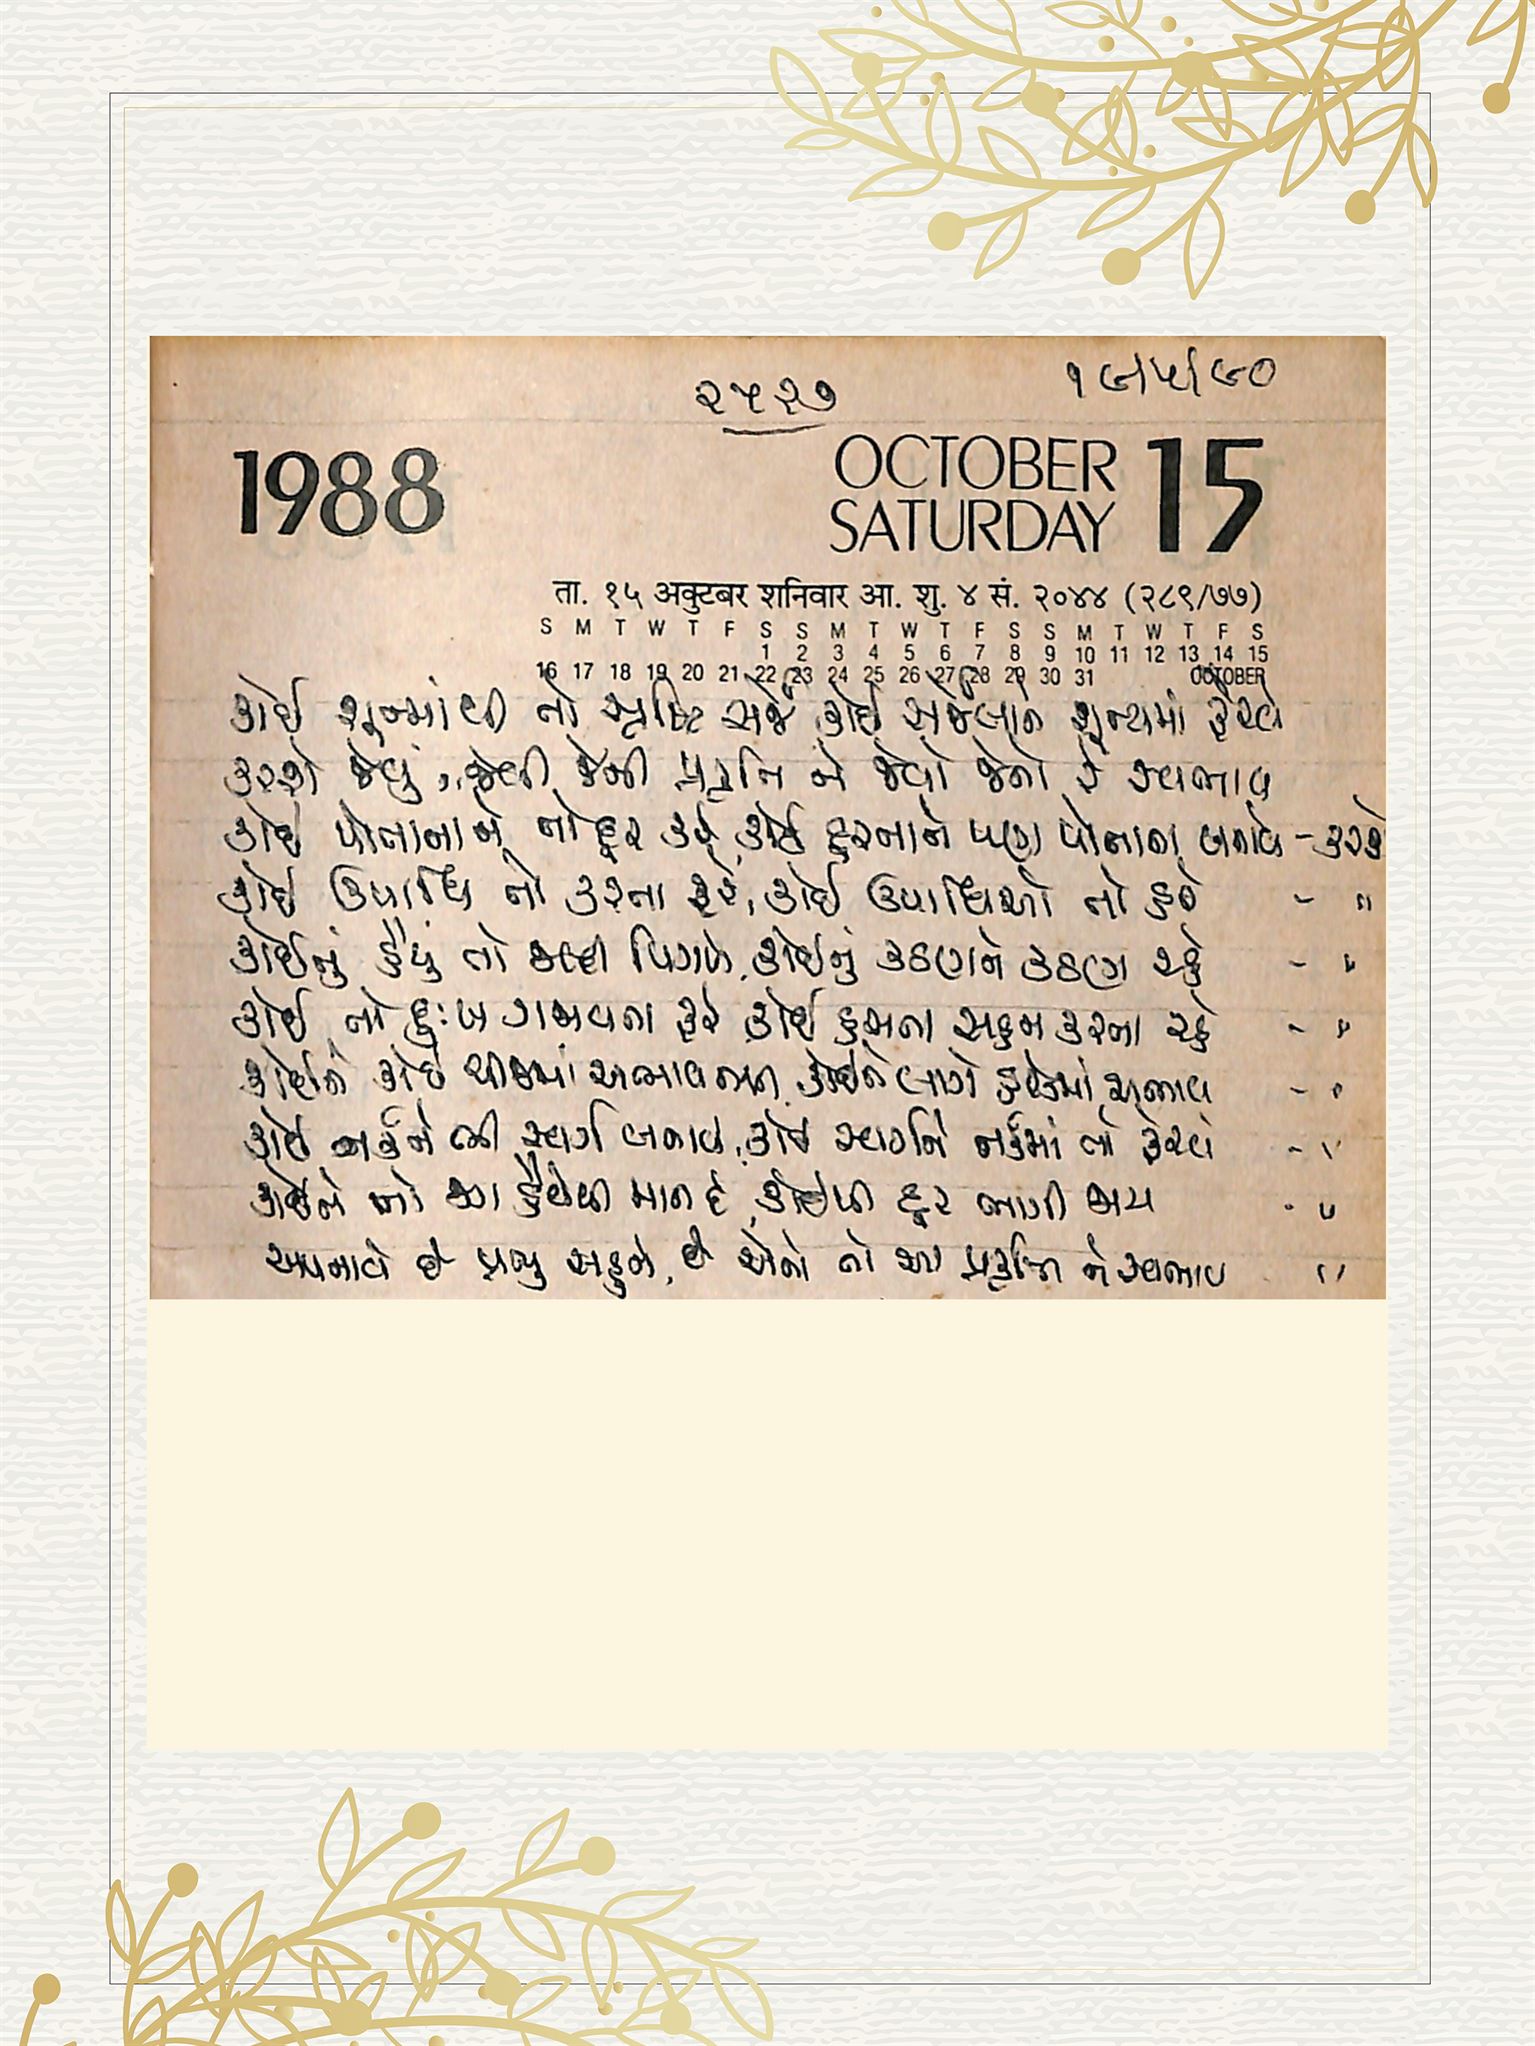 ૨૫૨૭
૧૯/૫/૯૦
1988
OCTOBER 15
SATURDAY
ता. १५ अक्टुबर शनिवार आ. शु. ४ सं. २०४४ (२८९/७७)
S M T W T F S S M T W T F S S M T W T F S
1 2 3 4 5 6 7 8 9 10 11 12 13 14 15
16 17 18 19 20 21 22 23 24 25 26 27 28 29 30 31 OCTOBER
કોઈ શૂન્યમાંથી તો સૃષ્ટિ સર્જે કોઈ સર્જેલાને શૂન્યમાં ફેરવે
કરશે જેવું, જેવી જેની પ્રકૃતિ ને જેવો જેનો રે સ્વભાવ
કોઈ પોતાનાને તો દૂર કરે, કોઈ દૂરનાને પણ પોતાના બનાવે - કરશે
કોઈ ઉપાધિ તો કરતા ફરે, કોઈ ઉપાધિઓ તો હરે - "
કોઈનું હૈયું તો જલ્દી પિગળે, કોઈનું કઠણને કઠણ રહે - "
કોઈ તો દુઃખ ગજાવતા ફરે કોઈ હસતા સહન કરતા રહે - "
કોઈને કોઈ ચીજમાં અભાવ, કોઈને લાગે હરેકમાં અભાવ - "
કોઈ નર્કને ભી સ્વર્ગ બનાવે, કોઈ સ્વર્ગને નર્કમાં તો ફેરવે - "
કોઈને તો હૈયેથી માન દે, કોઈથી દૂર ભાગી જાય - "
અપનાવે છે પ્રભુ સહુને, છે એનો તો આ પ્રકૃતિ ને સ્વભાવ "